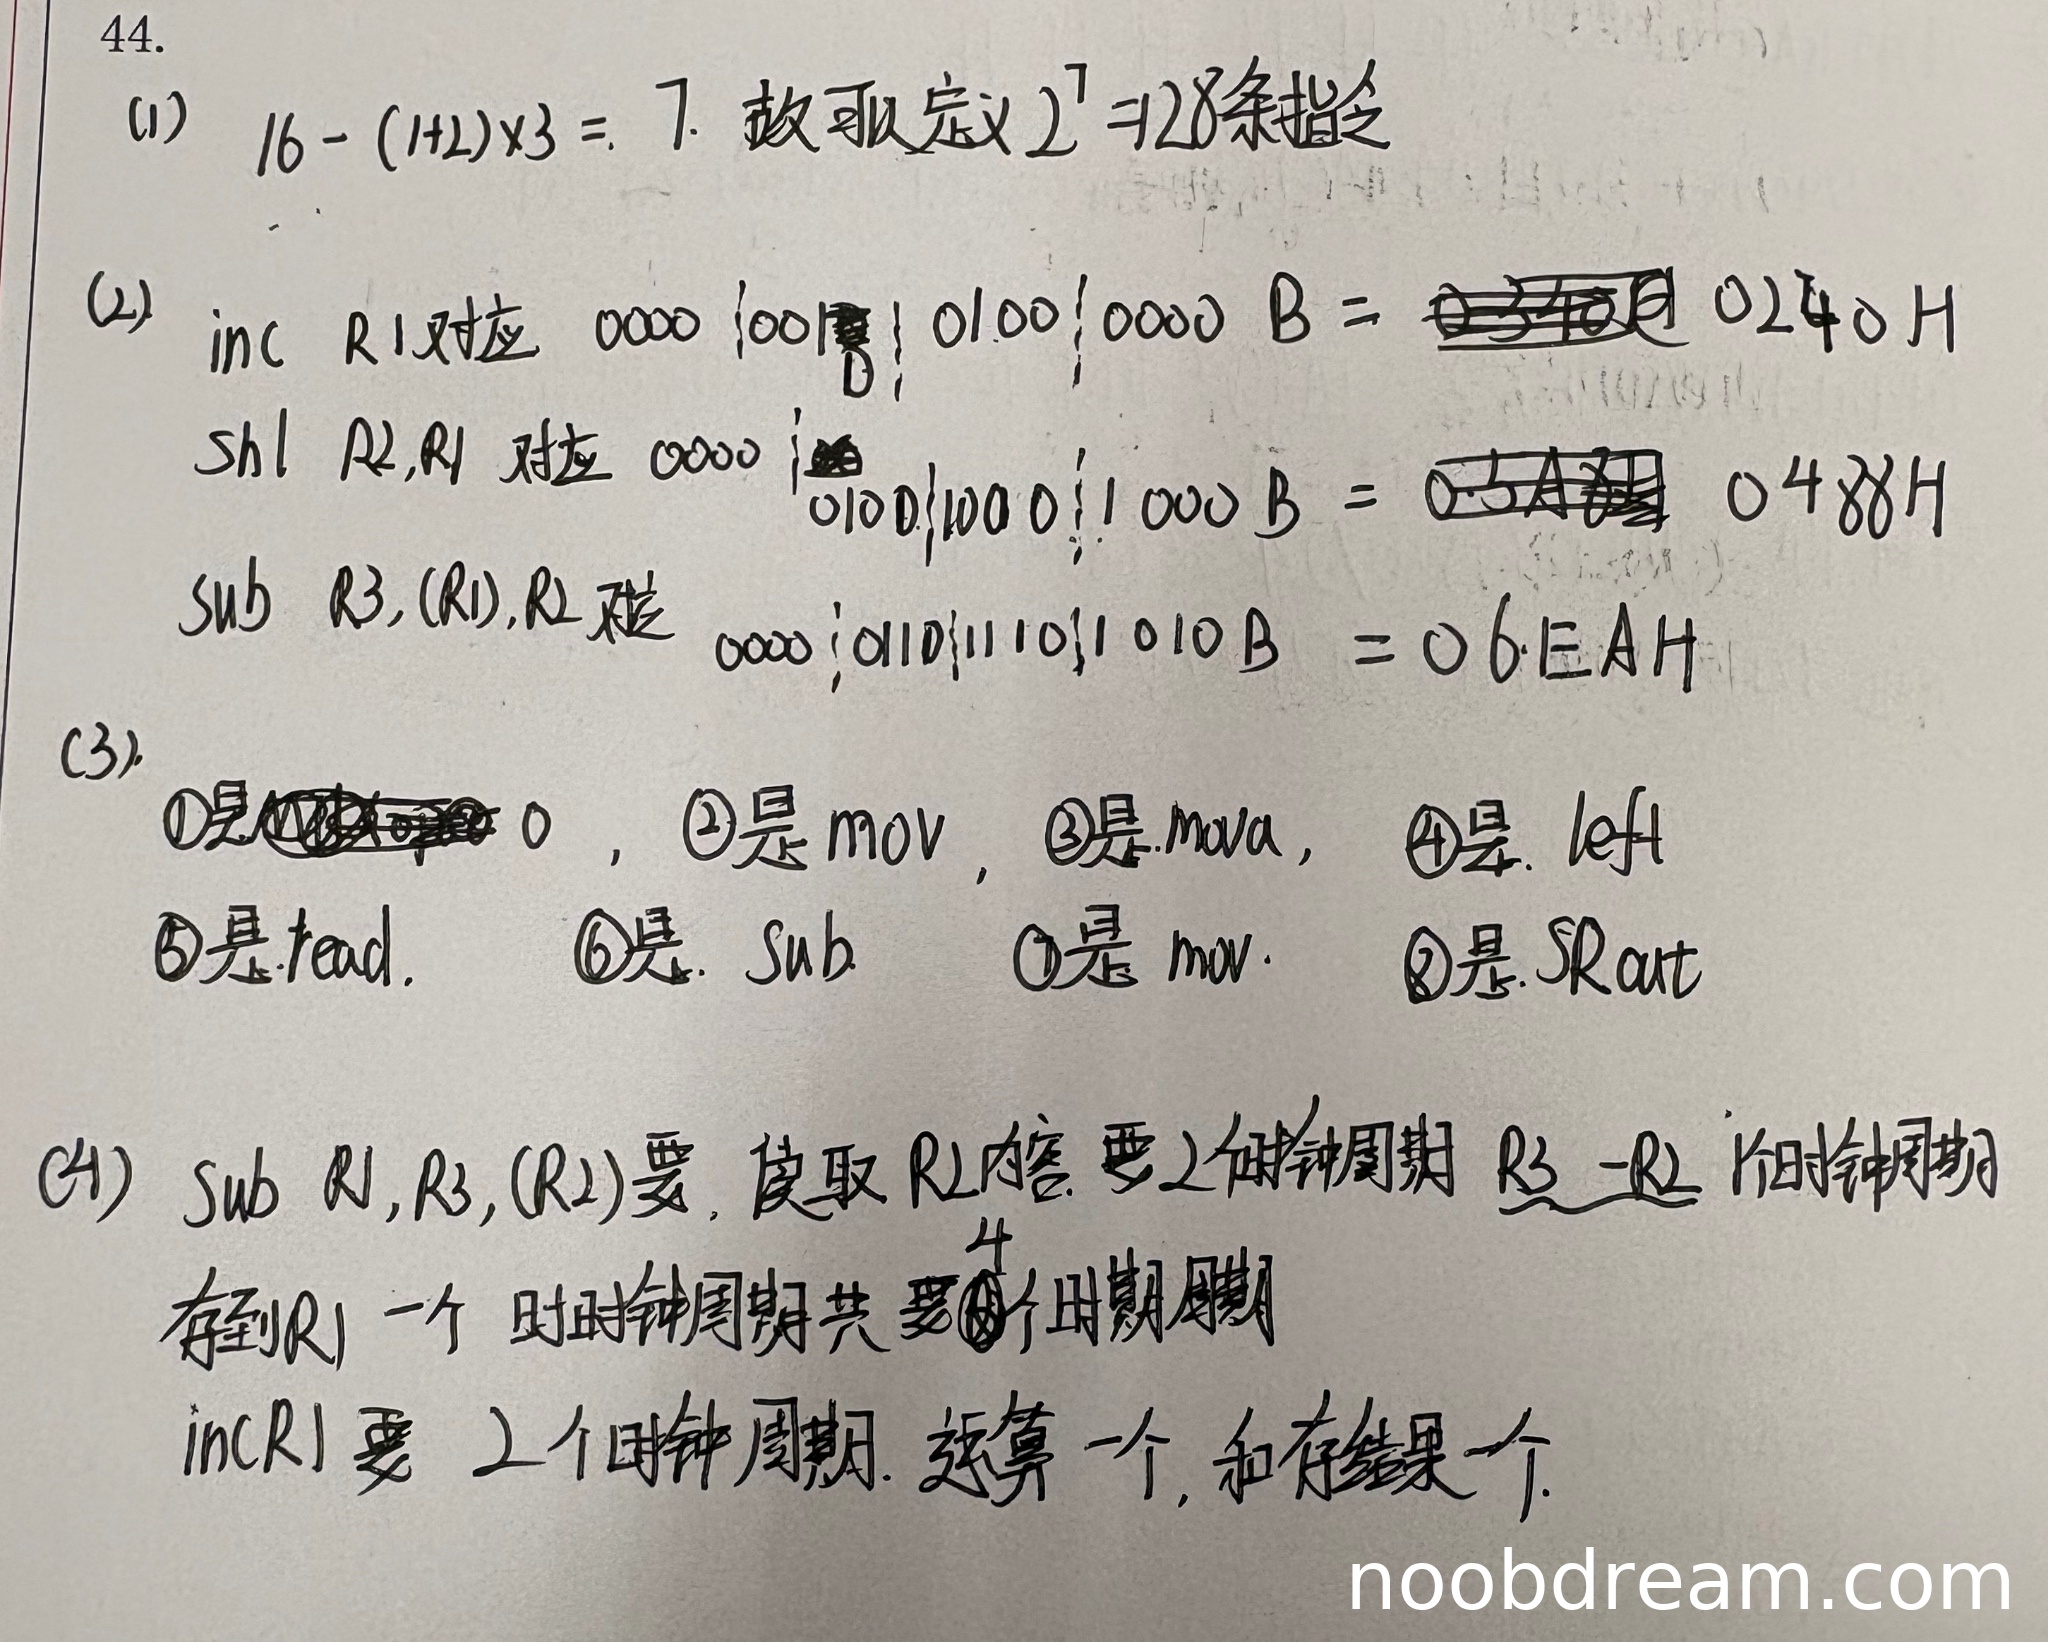 44.
(1) 16-(1+2)×3=. 7. 故可以定义2⁷=128条指令
(2). inc R1对应 0000 0010 0100 0000 B = 0240H
shl R2,R1 对应 0000 0100 1000 1000 B = 0488H
sub R3,(R1),R2对应 0000 0110 1110 1010 B = 06EAH
(3).
①是 0, ②是mov, ③是.mova, ④是. left
⑤是.read. ⑥是. sub. ⑦是 mov. ⑧是.SRout
(4) sub R1,R3,(R2)要, 读取R2内容.要2个时钟周期 R3-R2 1个时钟周期
存到R1 一个 时时钟周期共要4个时期周期
incR1 要 2个时钟周期. 运算一个, 和存结果一个.
noobdream.com